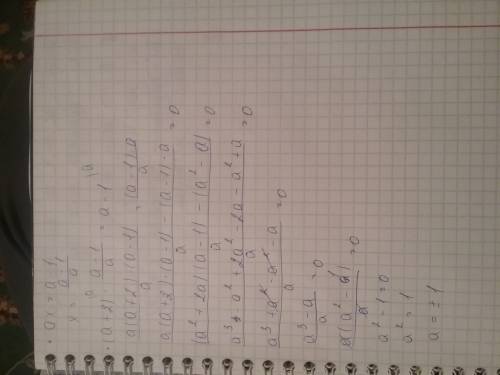 · ax = a-1
x = (a-1)/a
· a(a+2) · (a-1)/a = a-1
(a(a+2)·(a-1))/a = ((a-1)a)/a
(a(a+2)·(a-1)-(a-1)·a)/a = 0
((a²+2a)(a-1)-(a²-a))/a = 0
(a³-a²+2a²-2a-a²+a)/a = 0
(a³+a²-a²-a)/a = 0
(a³-a)/a = 0
(a(a²-1))/a = 0
a²-1=0
a²=1
a=±1